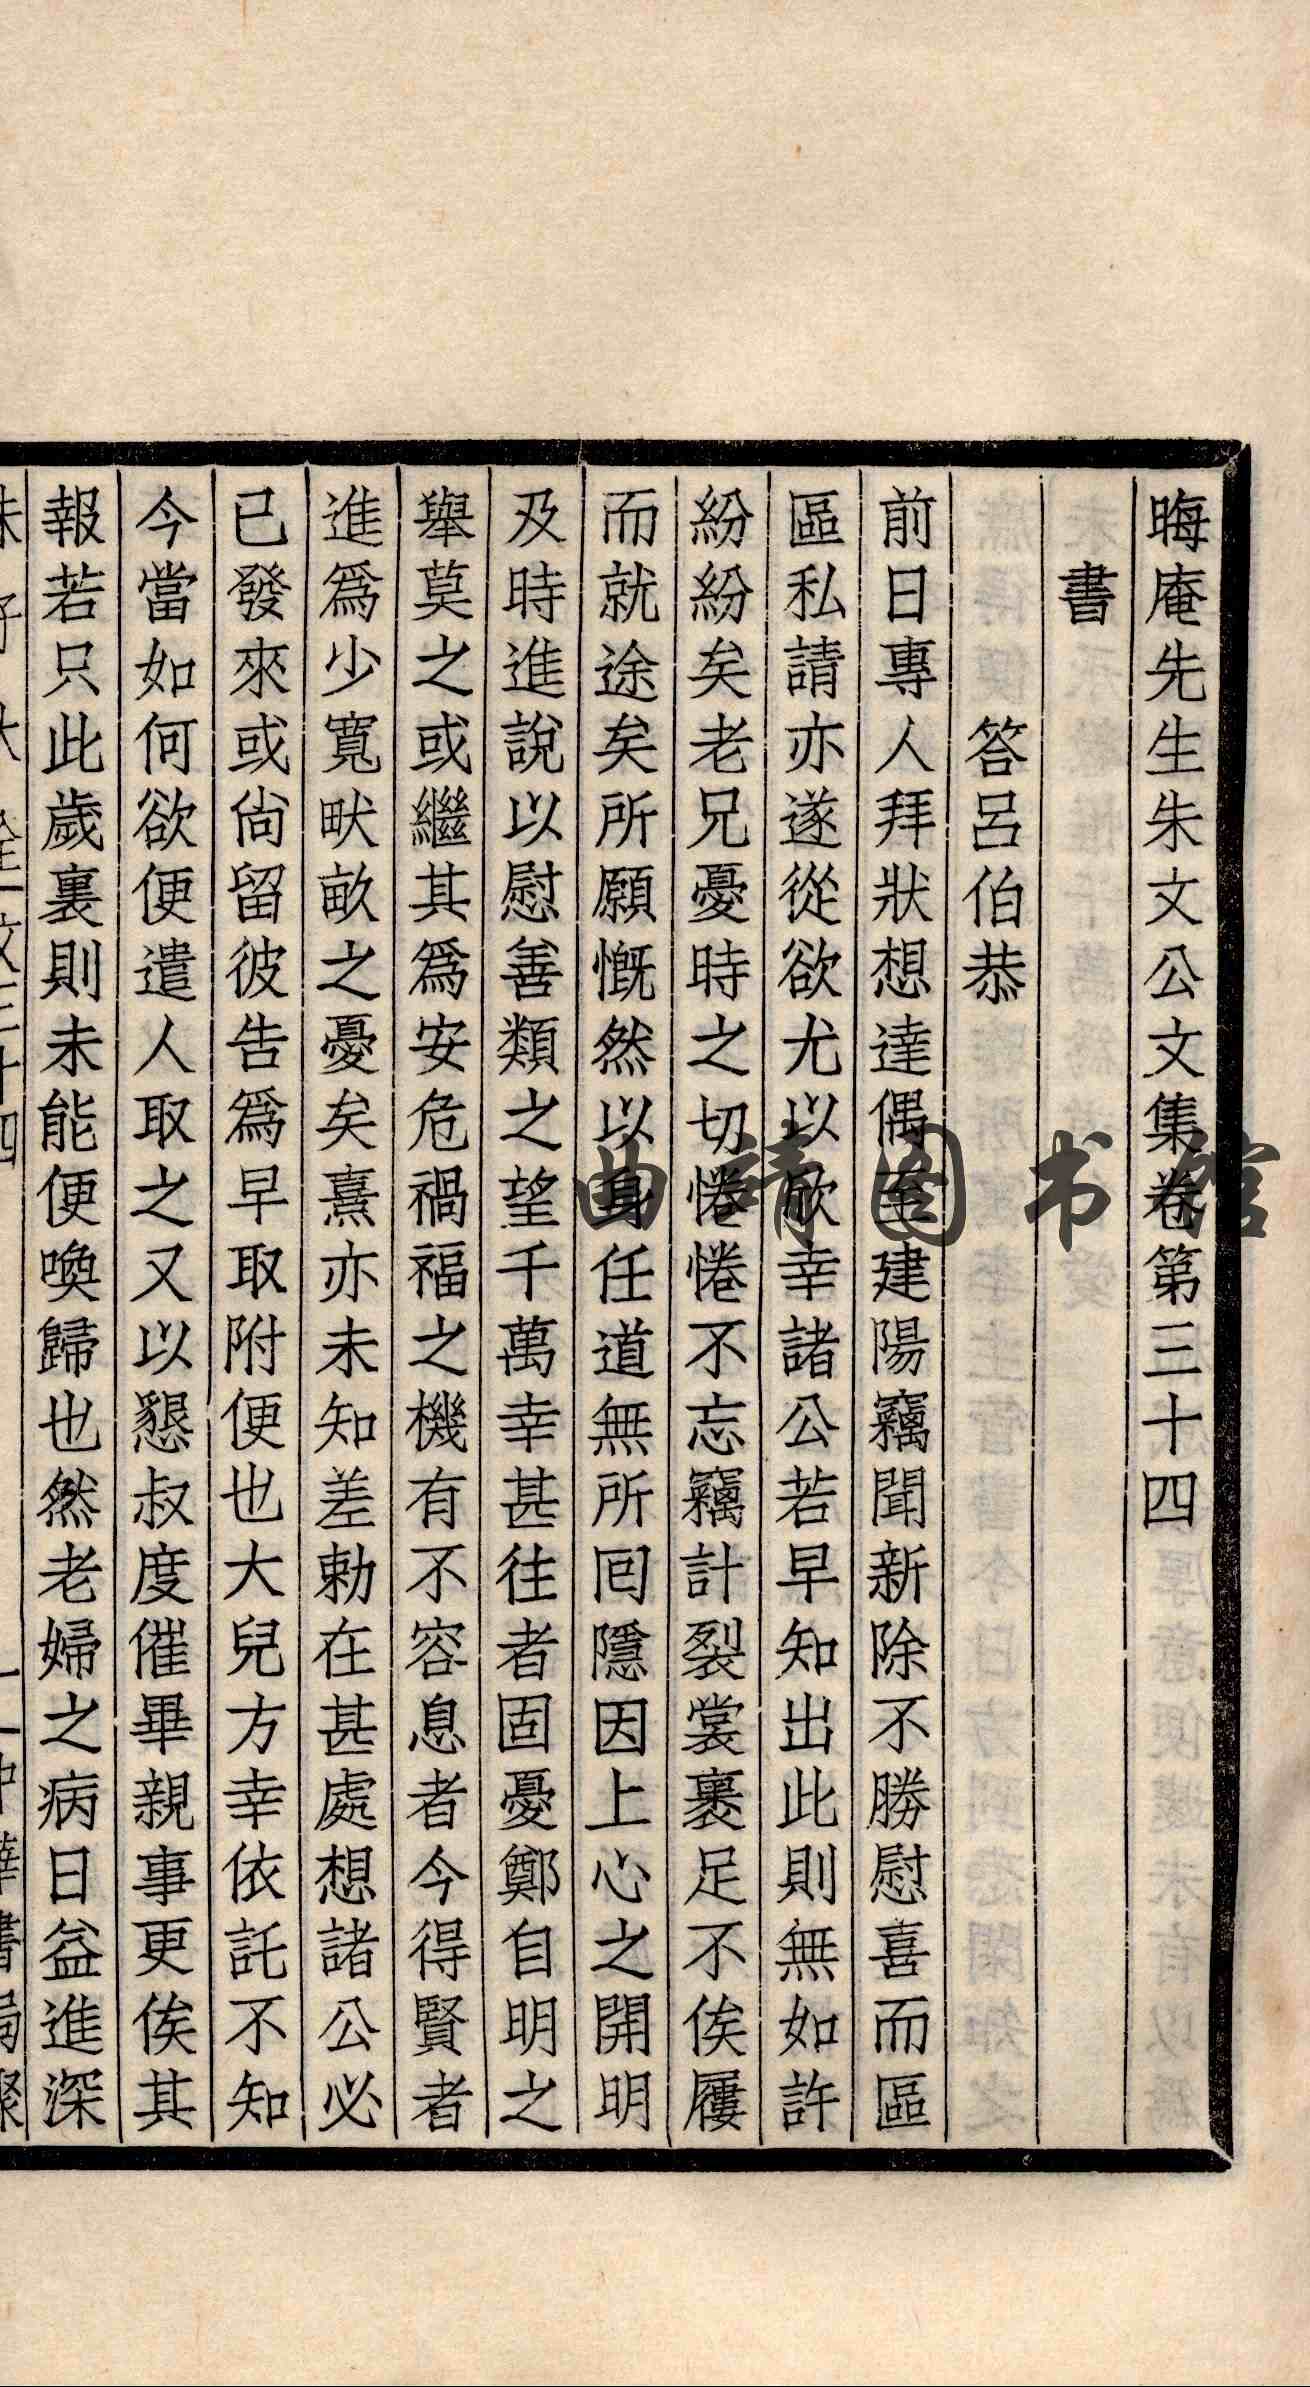 晦庵先生朱文公文集卷第三十四
書
答呂伯恭
前日專人拜狀想達偶至建陽竊聞新除不勝慰喜而區
區私請亦遂從欲尤以欣幸諸公若早知出此則無如許
紛紛矣老兄憂時之切惓惓不忘竊計裂裳裹足不俟屨
而就途矣所願慨然以身任道無所囘隱因上心之開明
及時進說以慰善類之望千萬幸甚往者固憂鄭自明之
舉莫之或繼其爲安危禍福之機有不容息者今得賢者
進爲少寬畎畝之憂矣熹亦未知差勅在甚處想諸公必
已發來或尙留彼告爲早取附便也大兒方幸依託不知
今當如何欲便遣人取之又以懇叔度催畢親事更俟其
報若只此歲裏則未能便喚歸也然老婦之病日益進深
曲靖图书馆